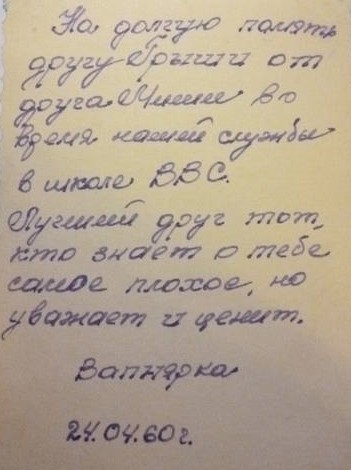 На долгую память
другу Грыши от
друга Миши во
время нашей службы
в школе ВВС.
Лучший друг тот,
кто знает о тебе
самое плохое, но
уважает и ценит.
Вапнярка
24.04.60г.